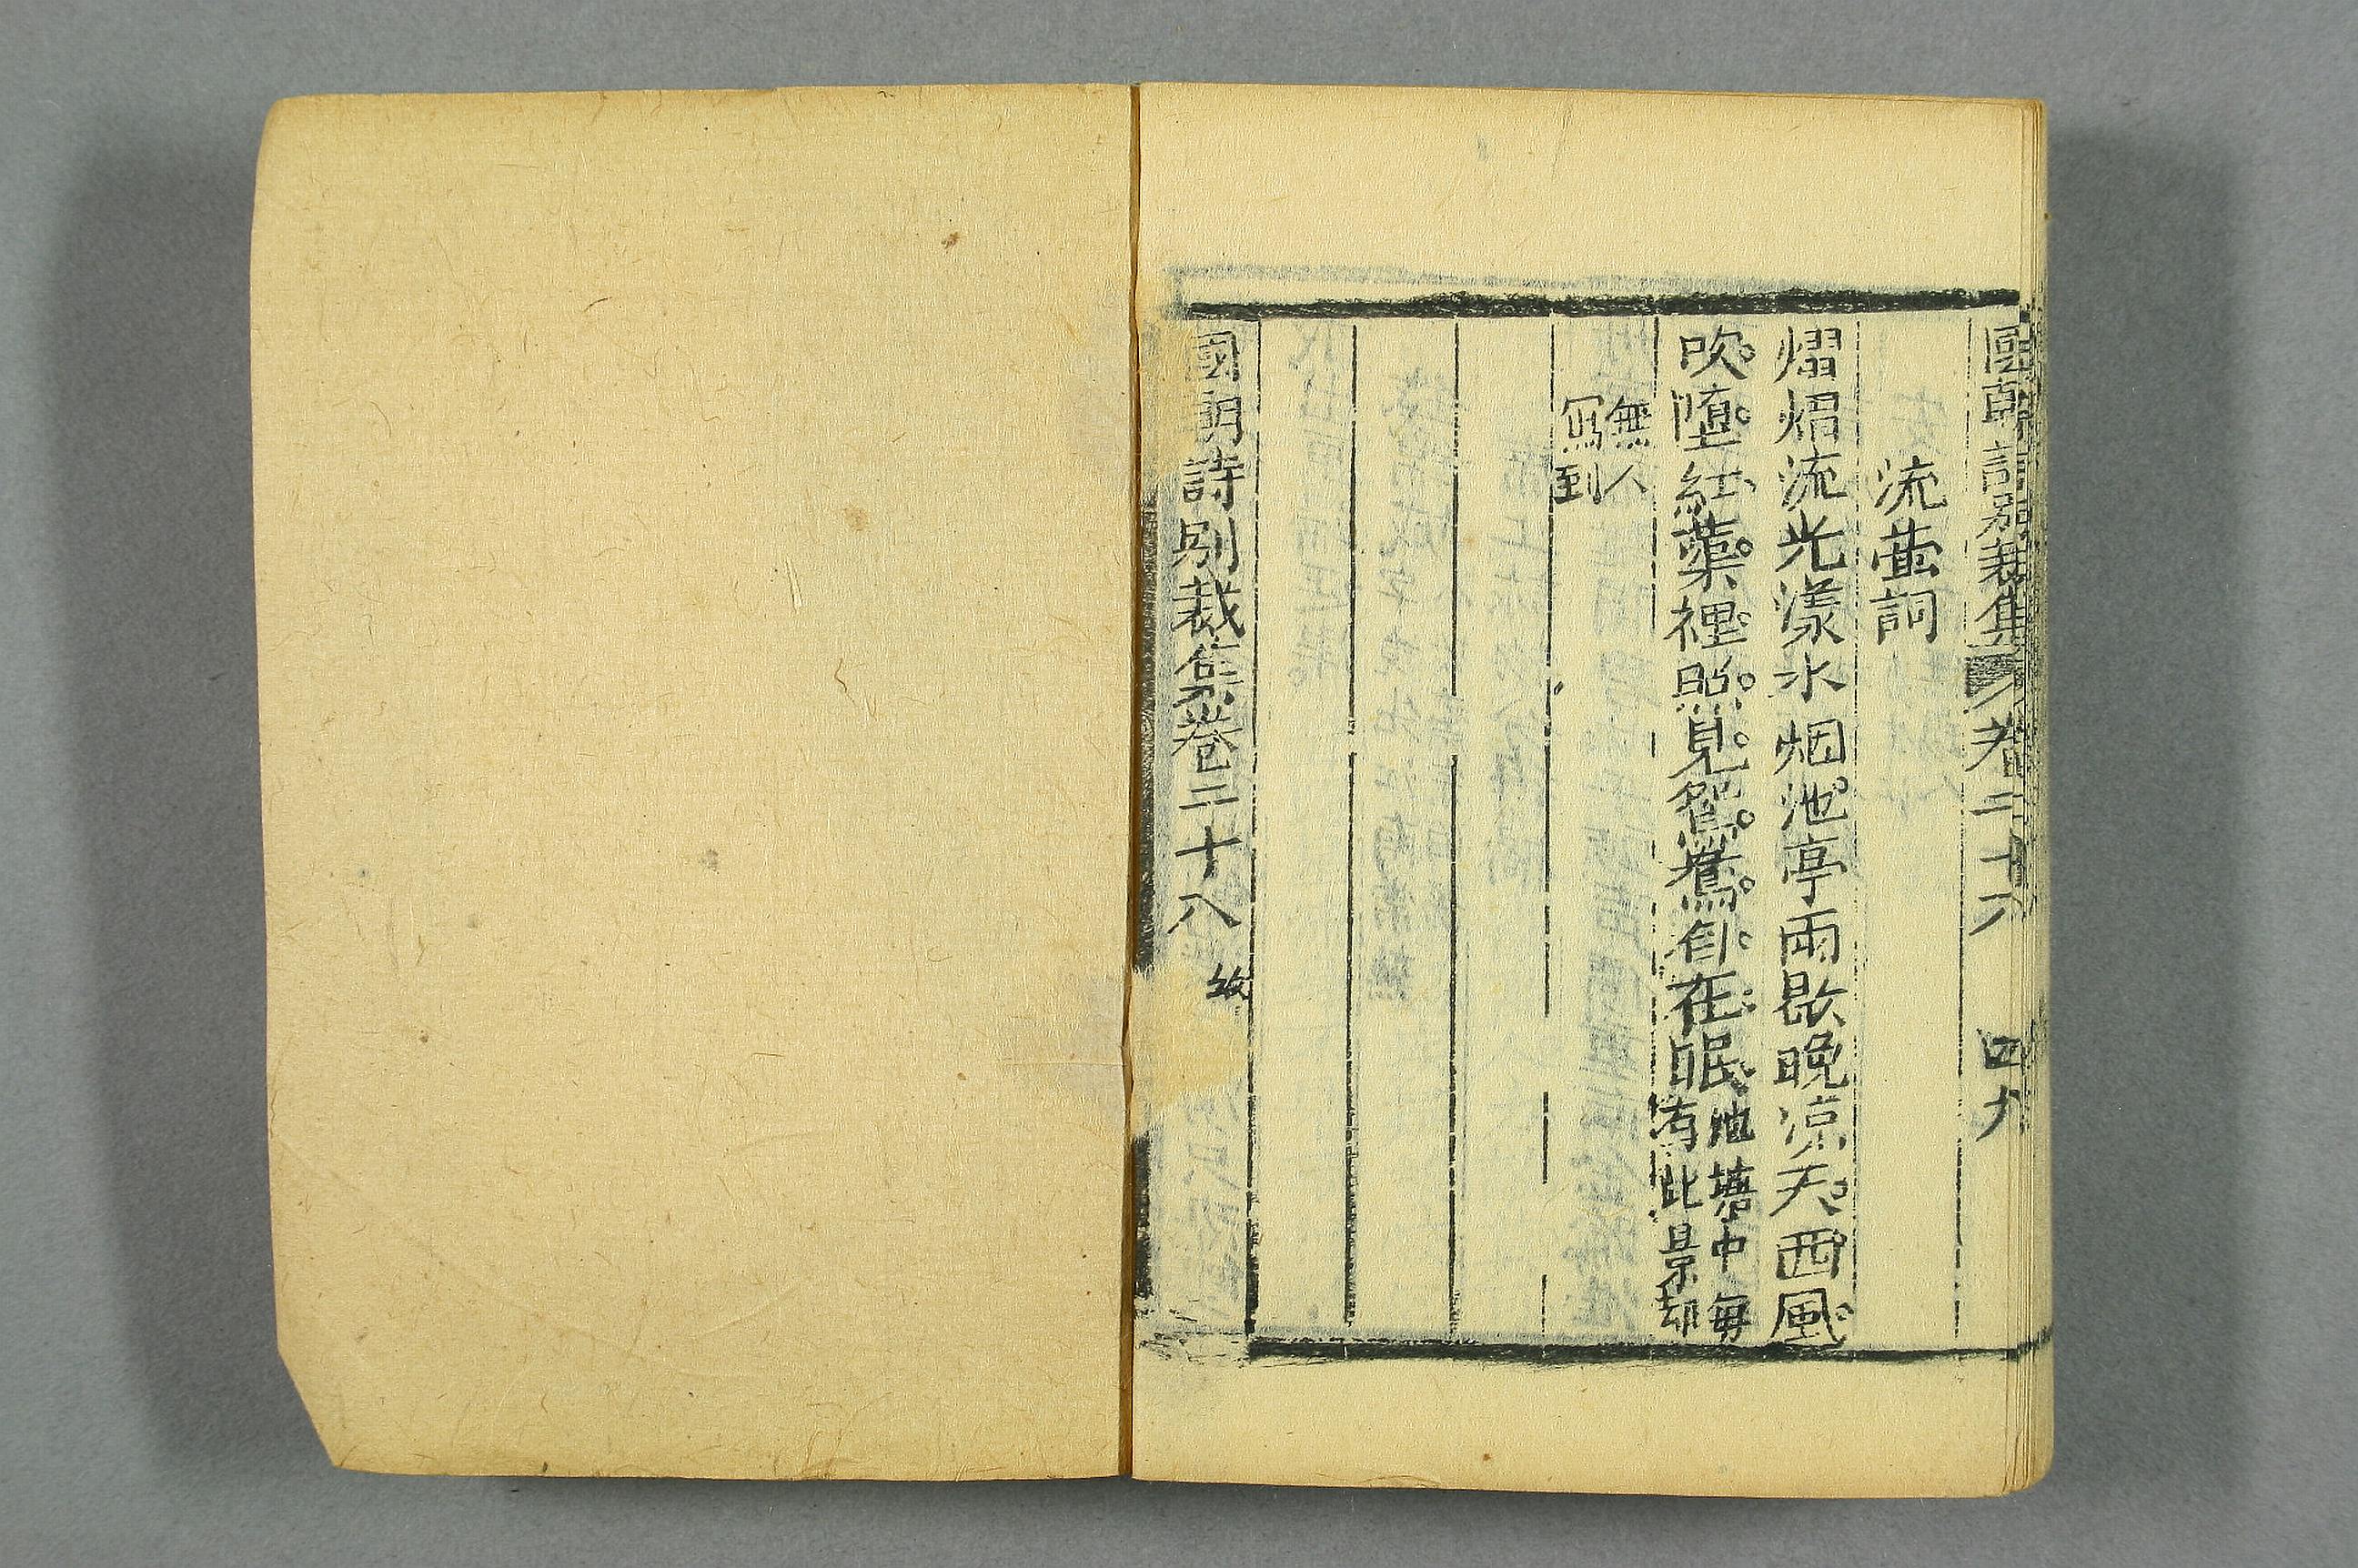 國朝詩別裁集 卷二十八 四九
流螢詞
熠熠流光漾水烟池亭雨歇晚凉天西風
吹墮紅蕖裡照見鴛鴦自在眠池塘中每
有此景却
無人
寫到
國朝詩別裁集卷二十八 終